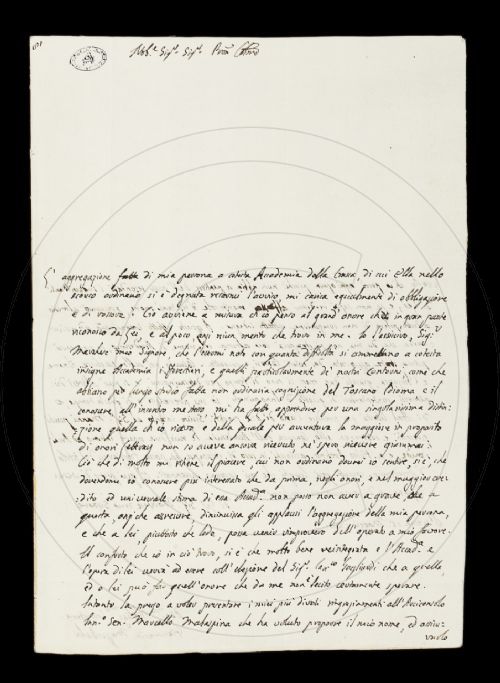 Nob.e Sig.r Sig.r Pron Colmo
L' aggregazione fatta di mia persona a cotesta Accademia della Crusca, di cui Ella nello
scorso ordinario si è degnata recarmi l'avviso, mi causa egualmente di obbligazione
e di rossore. Ciò avviene a misura ch'io penso al grand'onore che in gran parte
riconosco da Lei, e al poco, anzi niun merito che trovo in me. Io l'assicuro, Sig.r
mio Signore, che l'essermi noto con quanta si ammettino a cotesta
insigne Accademia i Forestieri, e quelli particolarmente de' nostri Contorni, come che
abbiano per lungo studio fatta non ordinaria cognizione del Toscano Idioma e il
conoscere all'incontro me stesso mi ha fatto apprendere per una singolarissima distin=
zione quella ch'io ricevo, e della quale per avventura la maggiore in proposito
di onori non so avere ancora ricevuto nè spero ricevere giammai.
Ciò che di molto mi rattiene il piacere, cui non ordinario dovrei io sentire, si è, che
dovendomi io conoscere più interessato che da prima, negli onori, e nel maggior cre=
dito ed universale stima di essa Accad.a non posso non avere a grave, che a
questa, anzi che accrescere, diminuisca gli applausi l'aggregazione della mia persona,
e che a Lei, piuttosto che lode, possa venir rimprovero dell'operato a mio favore.
Il conforto che io in ciò trovo, si è che molto bene reintegrata e l'Accad.a e
l'opera di Lei verrà ad essere coll'elezione del Sig.r che a quella,
ed a Lei può far quell'onore che da me non è lecito certamente sperare.
Intanto la prego a voler presentare i miei più divoti ringraziamenti all'
Sen. Marcello Malaspina che ha voluto proporre il mio nome, ed assicu=
rarlo